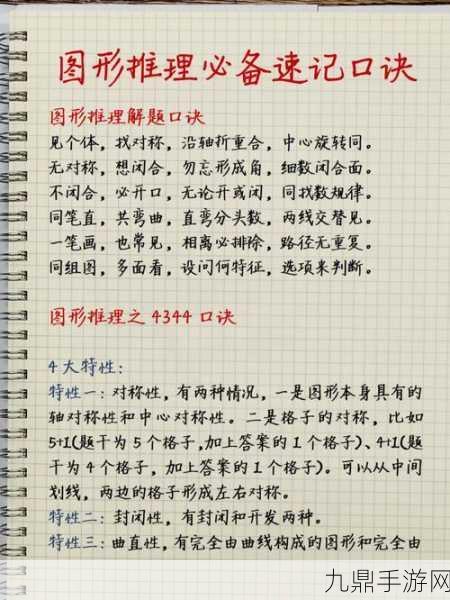 图形推理必备速记口诀
图形推理解题口诀
见个体，找对称，沿轴折重合，中心旋转同。
无对称，想闭合，勿忘形成角，细数闭合面。
不闭合，必开口，无论开或闭，同找数规律。
同笔直，共弯曲，直弯分头数，两线交替见。
一笔画，也常见，相离必排除，路径无重复。
同组图，多面看，设问何特征，选项来判断。
图形推理之4344口诀
4大特性：
特性一：对称性，有两种情况，一是图形本身具有的
轴对称性和中心对称性。二是格子的对称，比如
5+1(题干为5个格子,加上答案的1个格子)、4+1(题
干为4个格子，加上答案的1个格子)。可以从中间
划线，两边的格子形成左右对称。
特性二：封闭性，有封闭和开发两种。
特性三：曲直性，有完全由曲线构成的图形和完全由
九鼎手游网